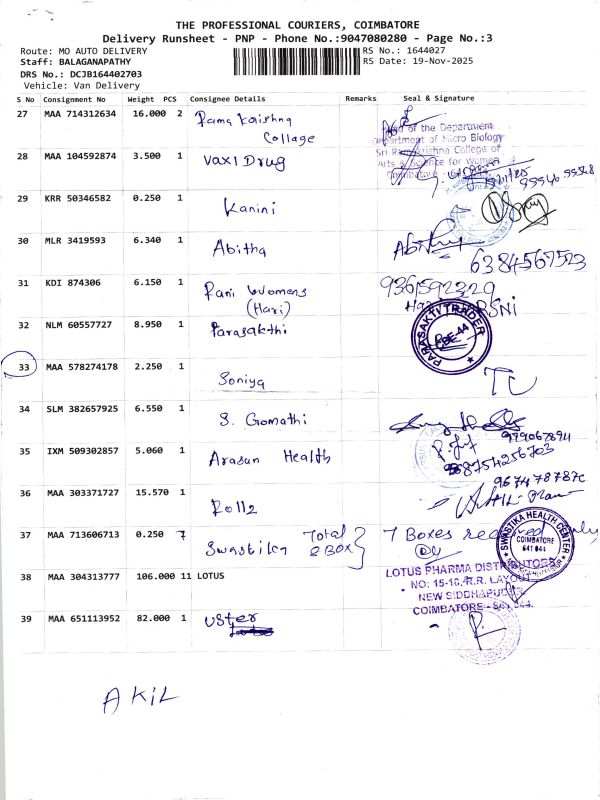 THE PROFESSIONAL COURIERS, COIMBATORE
Delivery Runsheet - PNP - Phone No.:9047080280 - Page No.:3
Route: MO AUTO DELIVERY
RS No.: 1644027
Staff: BALAGANAPATHY
RS Date: 19-Nov-2025
DRS No.: DCJB164402703
Vehicle: Van Delivery
S No Consignment No Weight PCS Consignee Details Remarks Seal & Signature
27 MAA 714312634 16.000 2 Rama Krishna Collage
of the Department
Department of Micro Biology
Sri Ramakrishna College of
Arts & Science for Women
Coimbatore
28 MAA 104592874 3.500 1 Vaxl Drug
29 KRR 50346582 0.250 1 Kanini
30 MLR 3419593 6.340 1 Abitha
6384567523
31 KDI 874306 6.150 1 Rani Womens (Hari)
9361592329
32 NLM 60557727 8.950 1 Parasakthi
PARASAKTI TRADER
CBE-44
33 MAA 578274178 2.250 1 Soniya
34 SLM 382657925 6.550 1 S. Gomathi
9790678911
35 IXM 509302857 5.060 1 Arasan Health
8754256703
36 MAA 303371727 15.570 1 Rollz
37 MAA 713606713 0.250 7 Swastika Total 8 BOX
7 Boxes received only
SWASTIKA HEALTH CENTER
COIMBATORE
641 044
38 MAA 304313777 106.000 11 LOTUS
LOTUS PHARMA DISTRIBUTORS
NO: 15-16, R.R. LAYOUT
NEW SIDDHAPUDUR
COIMBATORE - 641 044.
39 MAA 651113952 82.000 1 uster
AKIL